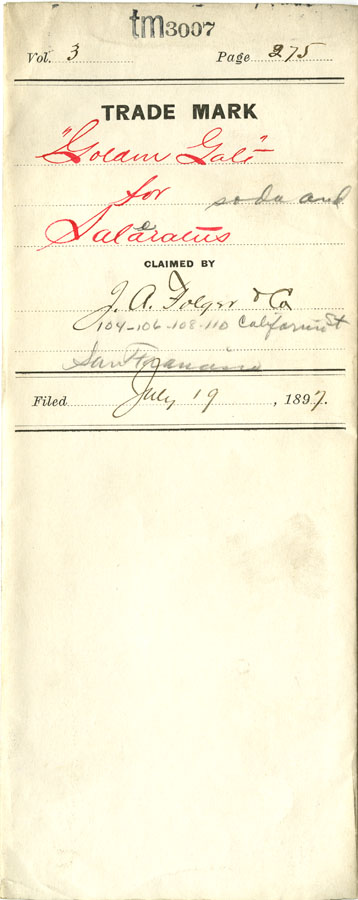 tm3007
Vol. 3 Page 275
TRADE MARK
"Golden Gate"
for soda and
Saleratus
CLAIMED BY
J. A. Folger & Co
104-106-108-110 California St
San Francisco
Filed July 19, 1897.